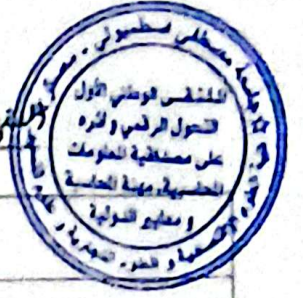 جامعة مصطفى اسطمبولي - معسكر
الملتقى الوطني الأول
التحول الرقمي وأثره
على مصداقية المعلومات
المحاسبية، مهنة المحاسبة
و معايير الدولية
كلية العلوم الاقتصادية و العلوم التجارية و علوم التسيير